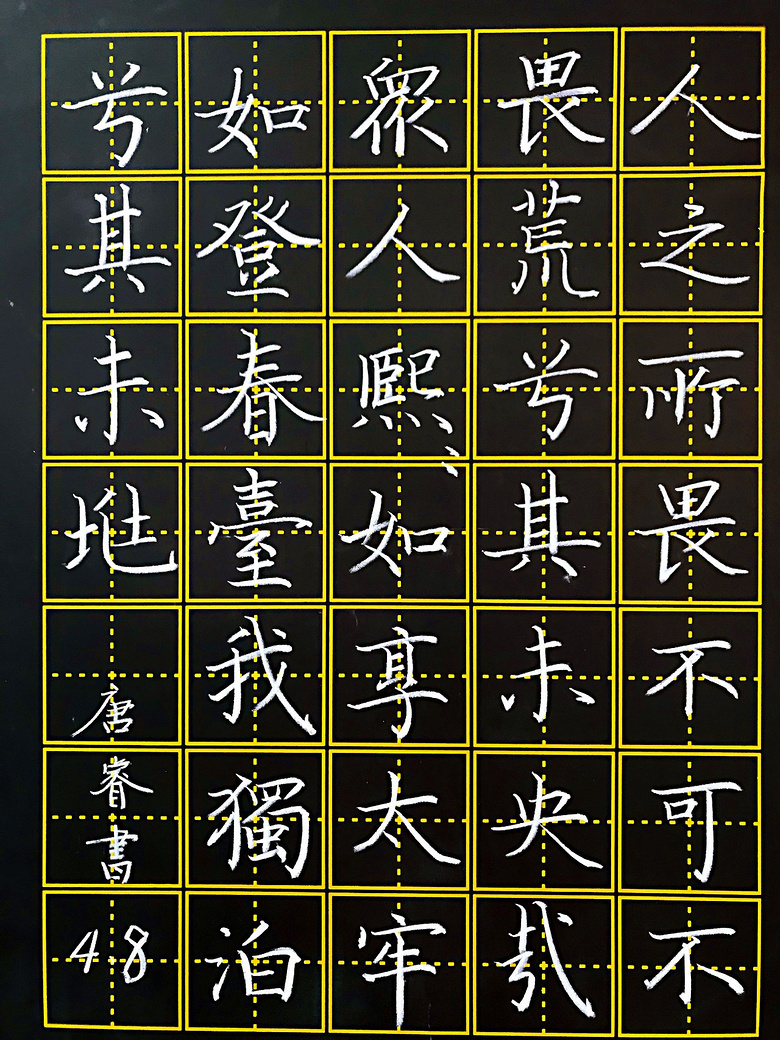 人之所畏不可不
畏荒兮其未央哉
眾人熙〻如享太牢
如登春臺我獨泊
兮其未垗
唐睿書
4.8